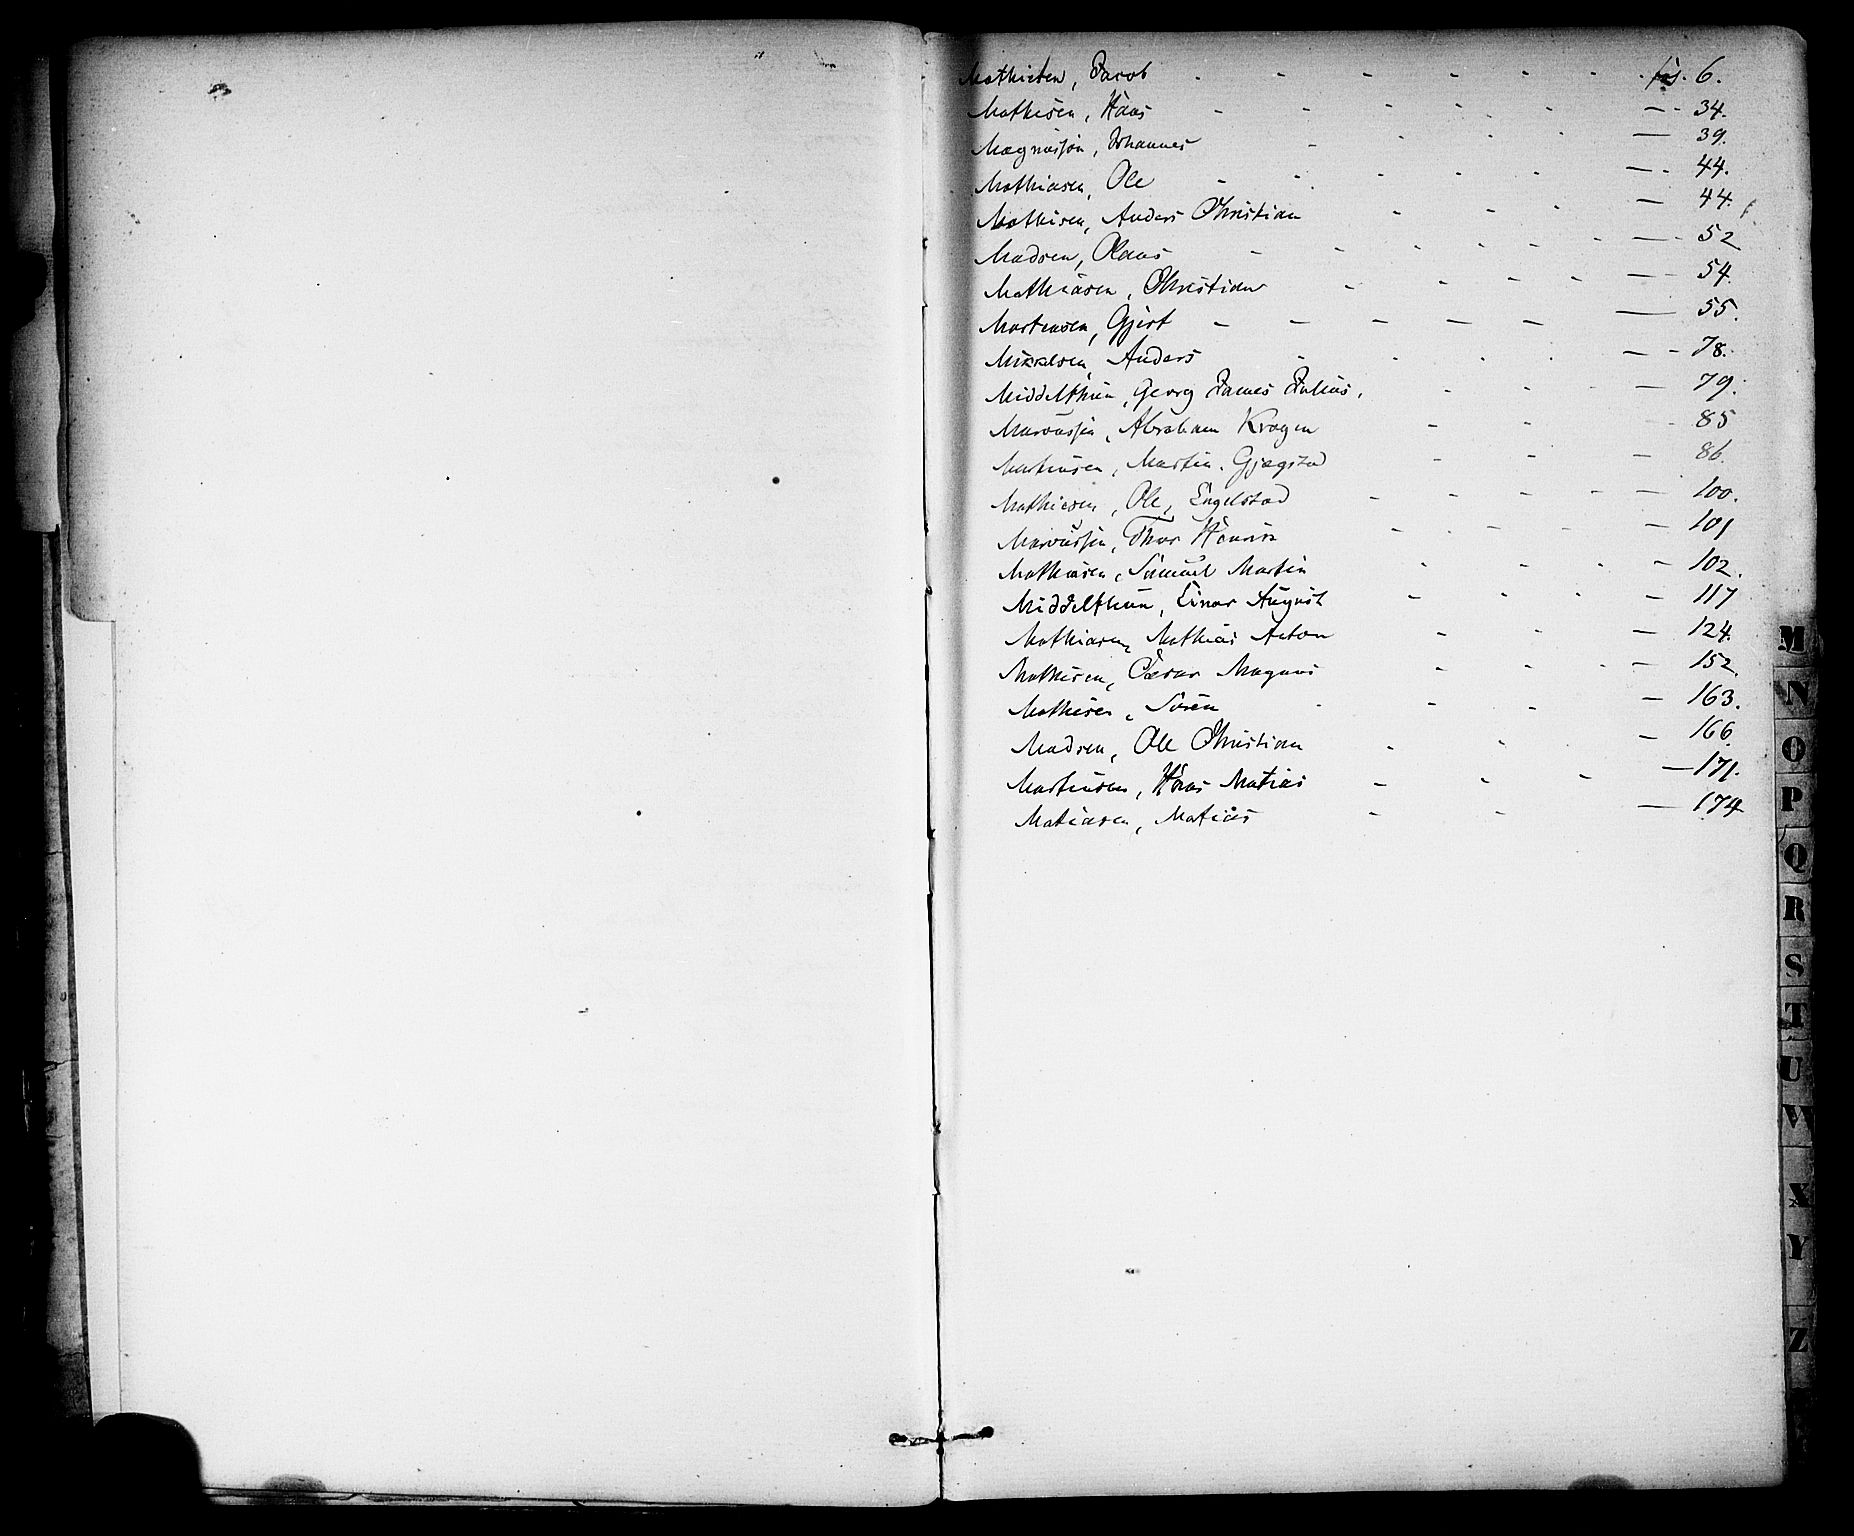 Mathisen, Jacob - - - - - - - fol. 6.
Mathisen, Hans - - - - - — - 34.
Magnussen, Johannes - - - - — 39.
Mathiasen, Ole - - - - - — - 44.
Mathisen, Anders Christian - - - — 44.
Madsen, Claus - - - - - — - 52
Mathiasen, Christian - - - - — - 54.
Martensen, Gjert - - - - - — 55.
Mikkelsen, Anders - - - - — - 78.
Middelthun, Georg James Julius. - - - — 79.
Marcussen, Abraham Krogen - - - 85
Martinsen, Martin Gjægstad - - — 86.
Mathiesen, Ole, Engelstad - - - - — 100.
Marcussen, Thor Henrik - - - - — 101
Mathiasen, Samuel Martin - - - — 102.
Middelthun, Einar August - - - — 117
Mathiasen, Mathias Anton - - — 124.
Mathisen, Cæsar Magnus - - - — 152.
Mathisen, Sören - - - — 163.
Madsen, Ole Christian - - - — 166.
Martinsen, Hans Matias - - - — 171.
Matiasen, Matias - - — 174
M
N
O
P
Q
R
S
T
U
W
X
Y
Z